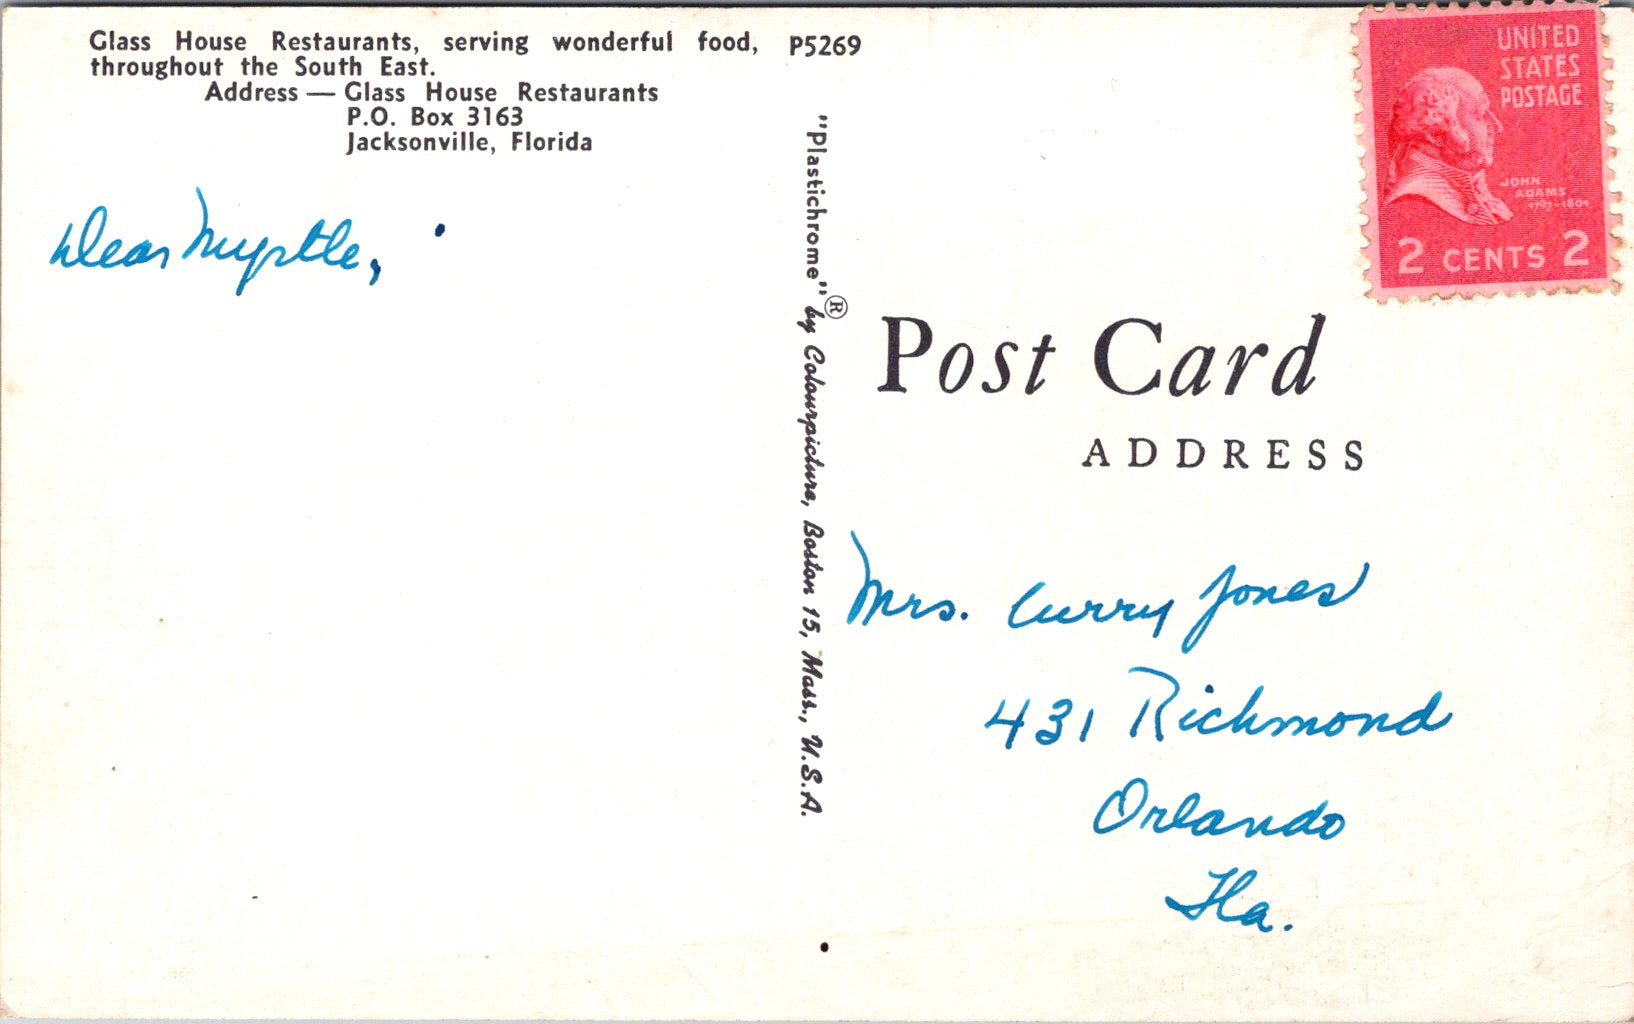 Glass House Restaurants, serving wonderful food, P5269
throughout the South East.
Address — Glass House Restaurants
P.O. Box 3163
Jacksonville, Florida
Dear Myrtle,
"Plastichrome"® by Colourpicture, Boston 15, Mass., U.S.A.
UNITED
STATES
POSTAGE
JOHN
ADAMS
1797-1801
2 CENTS 2
Post Card
ADDRESS
Mrs. Curry Jones
431 Richmond
Orlando
Fla.